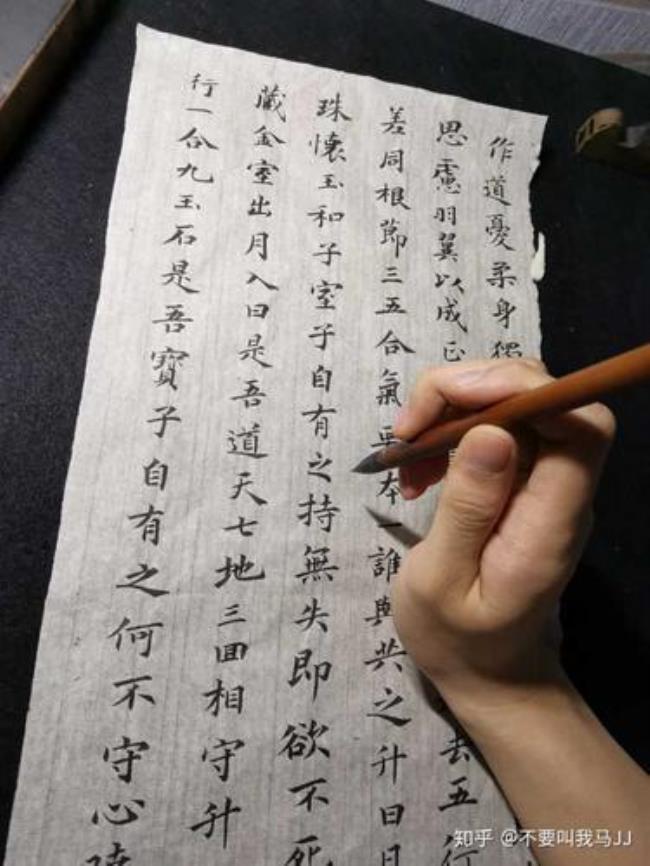 作道憂柔身獨
思慮羽翼以成正去五行
差同根節三五合氣要本一誰與共之升日月
珠懷玉和子室子自有之持無失即欲不死
藏金室出月入日是吾道天七地三回相守升
行一合九玉石是吾寶子自有之何不守心曉
知乎 @不要叫我马JJ